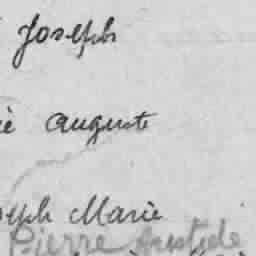 Joseph
auguste
Marie
Pierre Aristide